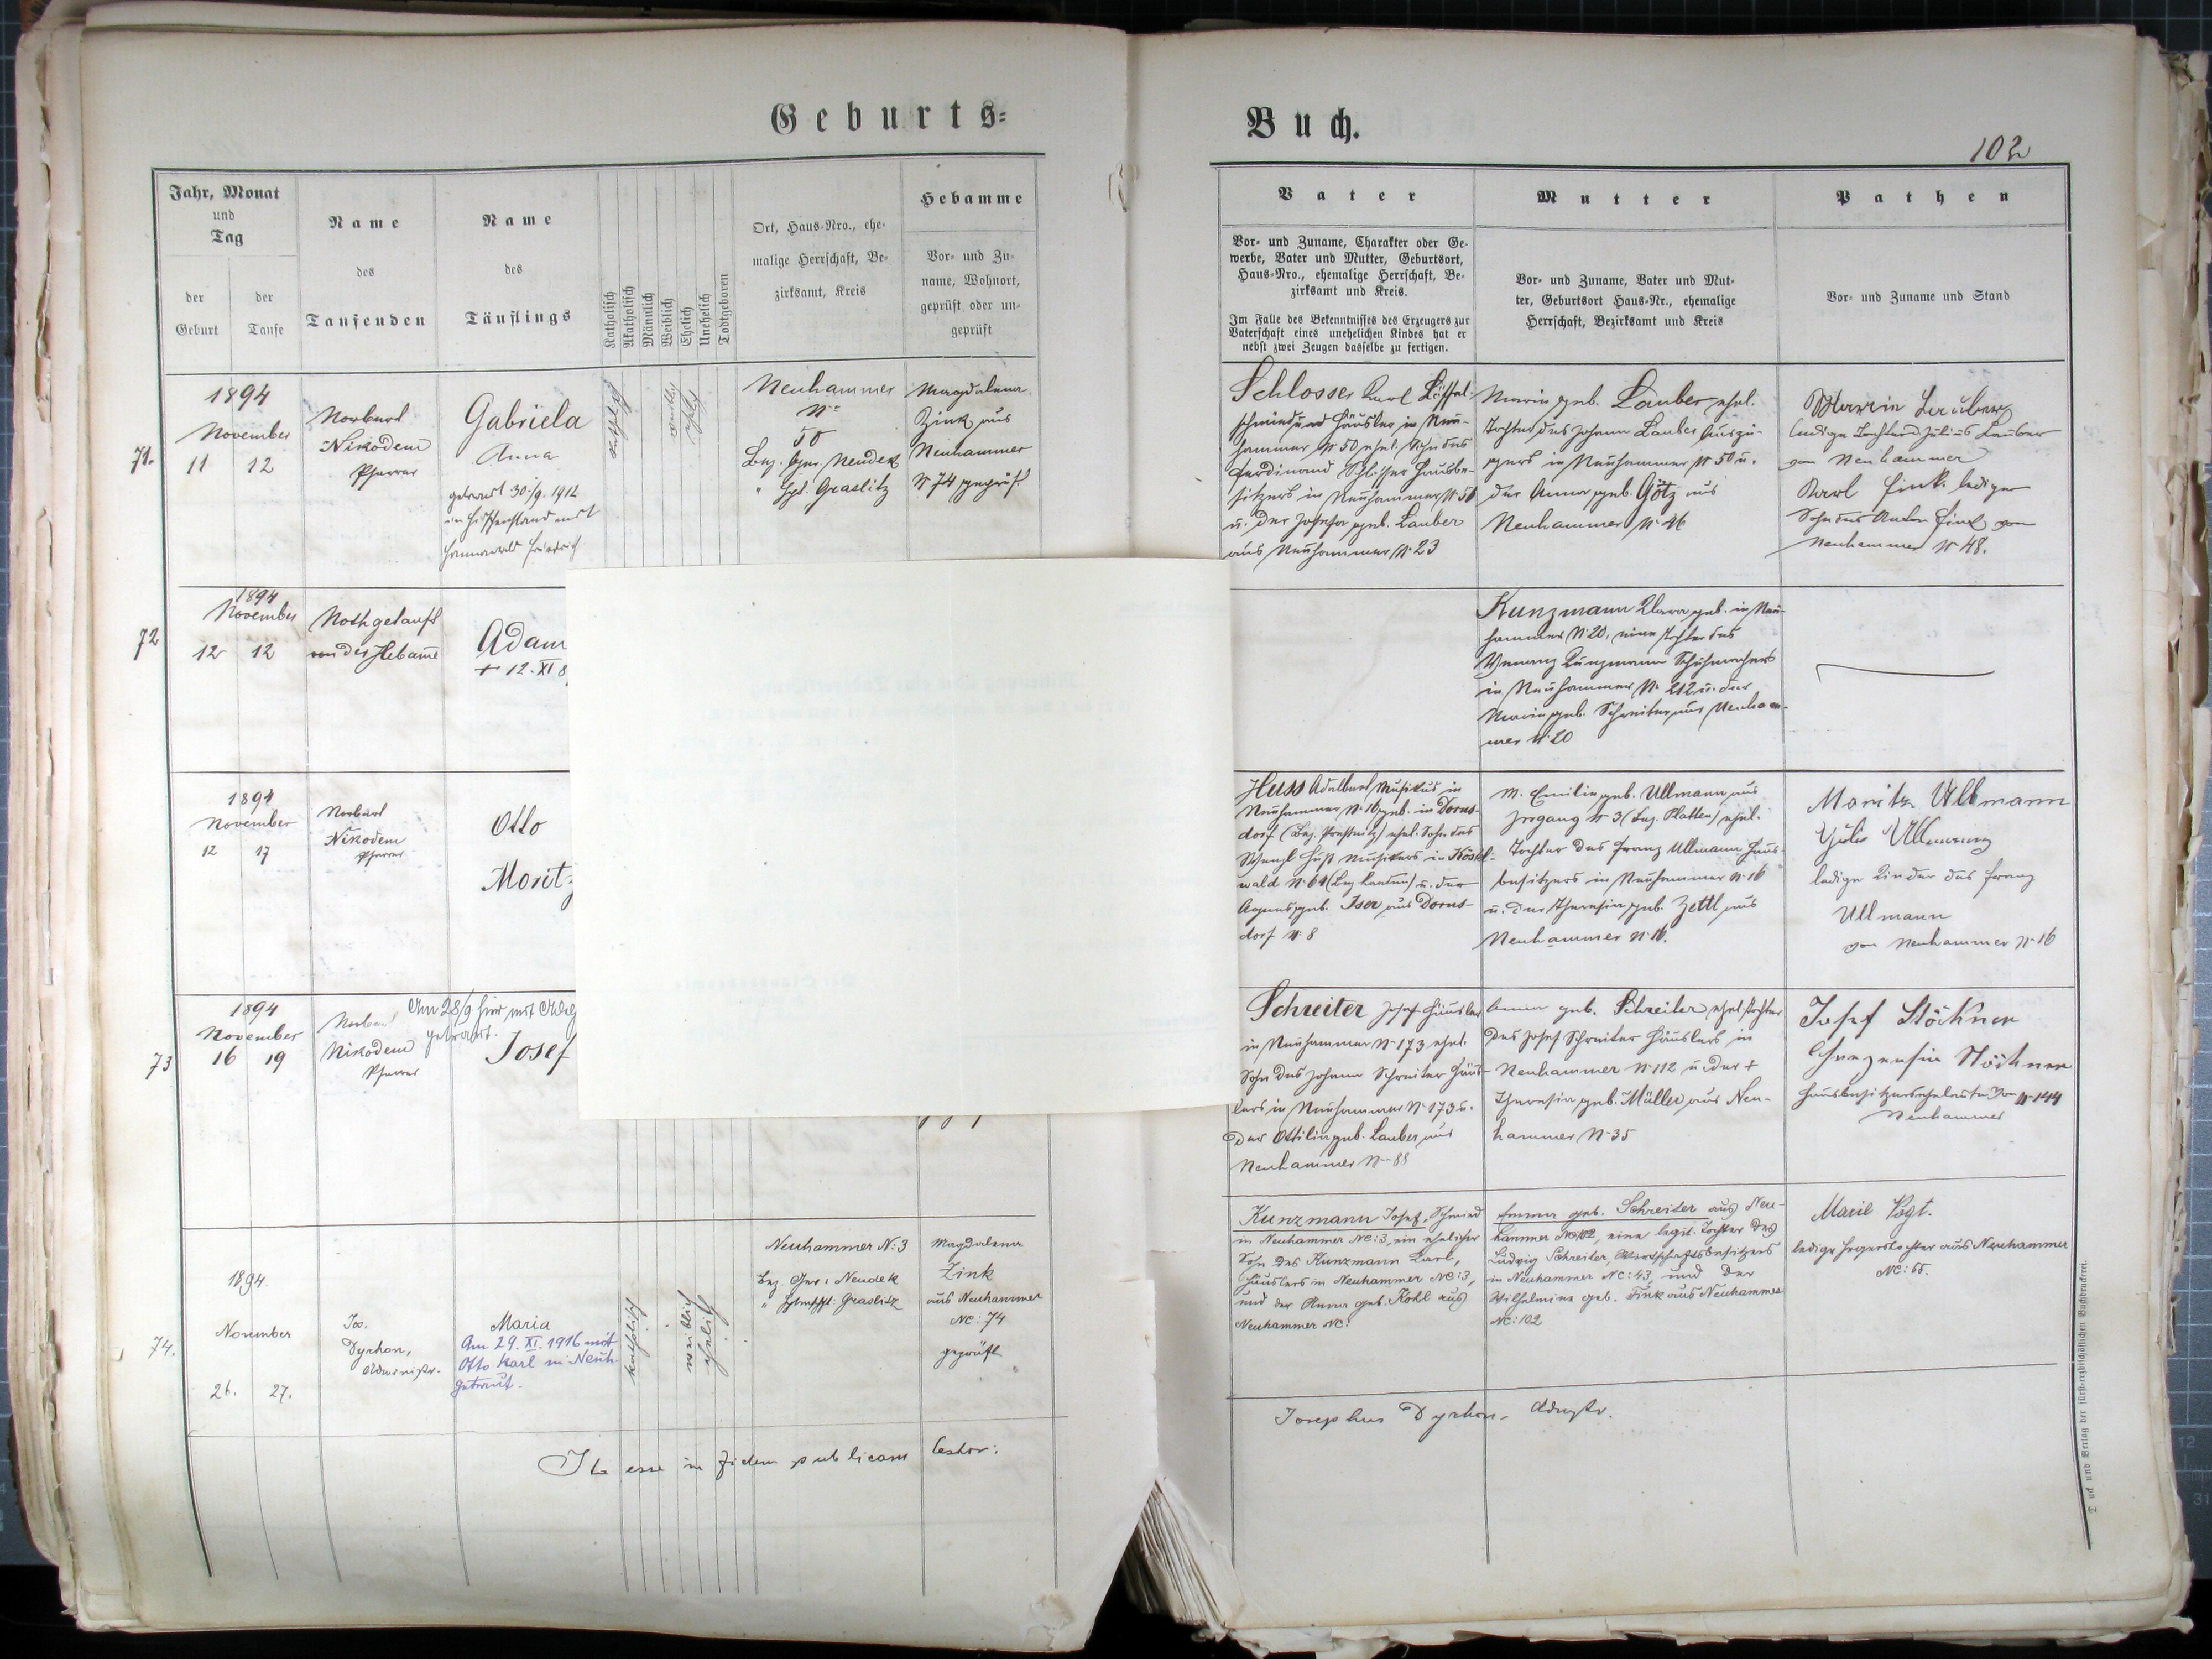 Geburts-
Buch.
102
Jahr, Monat
und
Tag
der
Geburt
der
Taufe
Name
des
Taufenden
Name
des
Täuflings
Katholisch
Akatholisch
Männlich
Weiblich
Ehelich
Unehelich
Todtgeboren
Ort, Haus-Nro., ehe-
malige Herrschaft, Be-
zirksamt, Kreis
Hebamme
Vor- und Zu-
name, Wohnort,
geprüft oder un-
geprüft
Vater
Vor- und Zuname, Charakter oder Ge-
werbe, Vater und Mutter, Geburtsort,
Haus-Nro., ehemalige Herrschaft, Be-
zirksamt und Kreis.
Im Falle des Bekenntnisses des Erzeugers zur
Vaterschaft eines unehelichen Kindes hat er
nebst zwei Zeugen dasselbe zu fertigen.
Mutter
Vor- und Zuname, Vater und Mut-
ter, Geburtsort Haus-Nr., ehemalige
Herrschaft, Bezirksamt und Kreis
Pathen
Vor- und Zuname und Stand
71.
1894
November
11 12
Norbert
Nikodem
Pfarrer
Gabriela
Anna
getraut 30./9. 1912
in Hirschenstand mit
katholisch
weiblich
ehelich
Neuhammer
No
50
Bez. Ger. Neudek
" Hpt. Graslitz
Magdalena
Zink aus
Neuhammer
N 74 geprüft
Schlosser Karl Löffel-
schmied und Häusler in Neu-
hammer N 50 ehel. Sohn des
Ferdinand Schlosser Hausbe-
sitzers in Neuhammer N. 50
u. der Josefa geb. Lauber
aus Neuhammer N. 23
Marie geb. Lauber ehel.
Tochter des Johann Lauber Auszü-
glers in Neuhammer N 50 u.
der Anna geb. Götz aus
Neuhammer N. 26
Marie Lauber
ledige Tochter d. Julius Lauber
von Neuhammer
Karl Fink lediger
Sohn des Anton Fink von
Neuhammer N 48.
72
1894
November
12 12
Nothgetauft
von der Hebame
Adam
+ 12. XI 8
Kunzmann Klara geb. in Neu-
hammer N. 20, eine Tochter des
Kunzmann Schuhmachers
in Neuhammer N. 212 u. der
Marie geb. Schreiter aus Neuham-
mer N. 20
1894
November
12 17
Norbert
Nikodem
Pfarrer
Otto
Moritz
Huss Adalbert Musikus in
Neuhammer N. 16, geb. in Dorns-
dorf (Bez. Pressnitz) ehel. Sohn des
Wenzl Huß Musikers in Köstel-
wald N. 64 (Bez. Kaaden) u. der
Agnes geb. Iser aus Dorns-
dorf N. 8
M. Emilie geb. Ullmann aus
Irrgang N 3 (Bez. Platten) ehel.
Tochter des Franz Ullmann Haus-
besitzers in Neuhammer N. 16
u. der Theresia geb. Zettl aus
Neuhammer N. 16.
Moritz Ullmann
Julie Ullmann
ledige Kinder des Franz
Ullmann
von Neuhammer N. 16
73
1894
November
16 19
Norbert
Nikodem
Pfarrer
Am 28/9 hier mit
getraut.
Josef
Schreiter Josef Häusler
in Neuhammer N. 173 ehel.
Sohn des Johann Schreiter Häus-
lers in Neuhammer N. 173 u.
der Ottilia geb. Lauber aus
Neuhammer N. 88
Anna geb. Schreiter ehel. Tochter
des Josef Schreiter Häuslers in
Neuhammer N. 112 u. der +
Theresia geb. Müller aus Neu-
hammer N. 35
Josef Stöckner
Kreszensia Stöckner
Hausbesitzerseheleute von N. 144
Neuhammer
74.
1894.
November
26. 27.
Jos.
Dyrhon,
Administr.
Maria
Am 29. XI. 1916 mit
Otto Karl in Neuh.
getraut.
katholisch
weiblich
ehelich
Neuhammer N: 3
Bez. Ger: Neudek
" Hptmschft: Graslitz
Magdalena
Zink
aus Neuhammer
NC: 74
geprüft
Kunzmann Josef, Schmied
in Neuhammer NC: 3, ein ehelicher
Sohn des Kunzmann Karl,
Häuslers in Neuhammer NC: 3,
und der Anna geb. Kohl aus
Neuhammer NC:
Emma geb. Schreiter aus Neu-
hammer NC: 102, eine legit. Tochter des
Ludwig Schreiter, Wirtschaftsbesitzers
in Neuhammer NC: 43, und der
Wilhelmine geb. Fink aus Neuhammer
NC: 102
Marie Vogt.
ledige Hegerstochter aus Neuhammer
NC: 55.
Ita esse in fidem publicam testor:
Josephus Dyrhon, Admstr.
Druck und Verlag der fürst-erzbischöflichen Buchdruckerei.